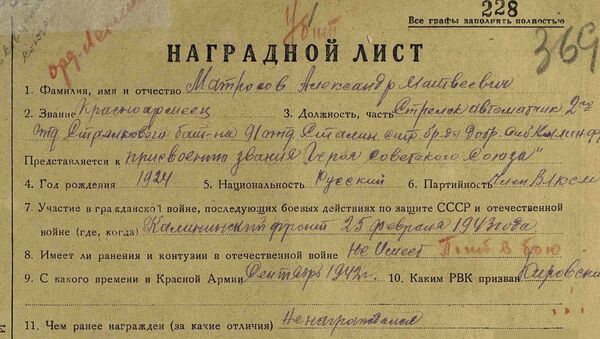 Убит
228
Все графы заполнять полностью
369
НАГРАДНОЙ ЛИСТ
1. Фамилия, имя и отчество Матросов Александр Матвеевич
2. Звание Красноармеец 3. Должность, часть Стрелок автоматчик 2го
отд Стрелкового бат-на 91 отд Сталин
Представляется к присвоению звания "Героя Советского Союза"
4. Год рождения 1924 5. Национальность Русский 6. Партийность член ВЛКСМ
7. Участие в гражданской войне, последующих боевых действиях по защите СССР и отечественной
войне (где, когда) Калининский фронт 25 февраля 1943 года
8. Имеет ли ранения и контузии в отечественной войне не имеет Погиб в бою
9. С какого времени в Красной Армии Сентябрь 1942г. 10. Каким РВК призван Кировски
11. Чем ранее награжден (за какие отличия) Не награждался